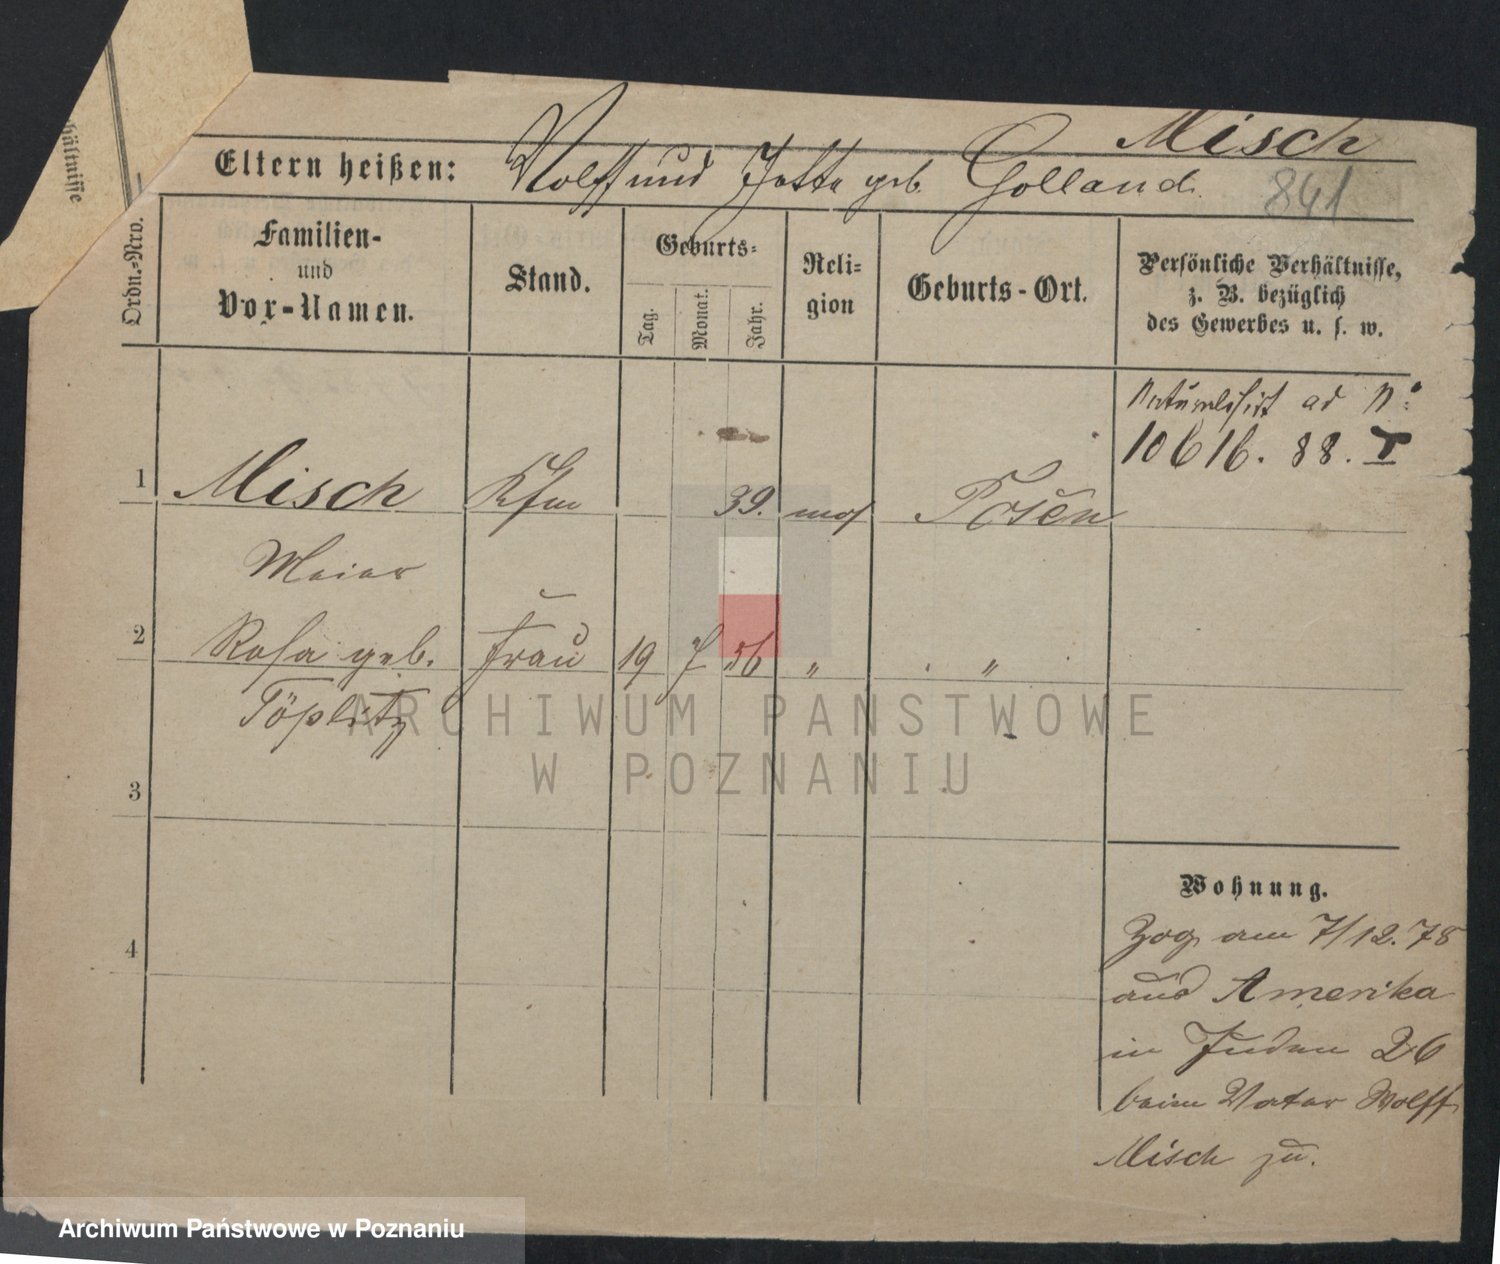 Misch
Eltern heißen: Wolff und Jette geb. Golland
841
hältnisse
Ordn.-Nro.
Familien-
und
Vor-Namen.
Stand.
Geburts-
Tag.
Monat.
Jahr.
Reli-
gion
Geburts-Ort.
Persönliche Verhältnisse,
z. B. bezüglich
des Gewerbes u. s. w.
Naturalisirt ad N:
10616. 88. I
1 Misch Kfm 39. mos Posen
Meier
2 Rosa geb. Frau 19 7 56 " "
Töplitz
3
4
Wohnung.
Zog am 7/12.78
aus Amerika
in Juden 26
beim Vater Wolff
Misch zu.
ARCHIWUM PAŃSTWOWE
W POZNANIU
Archiwum Państwowe w Poznaniu